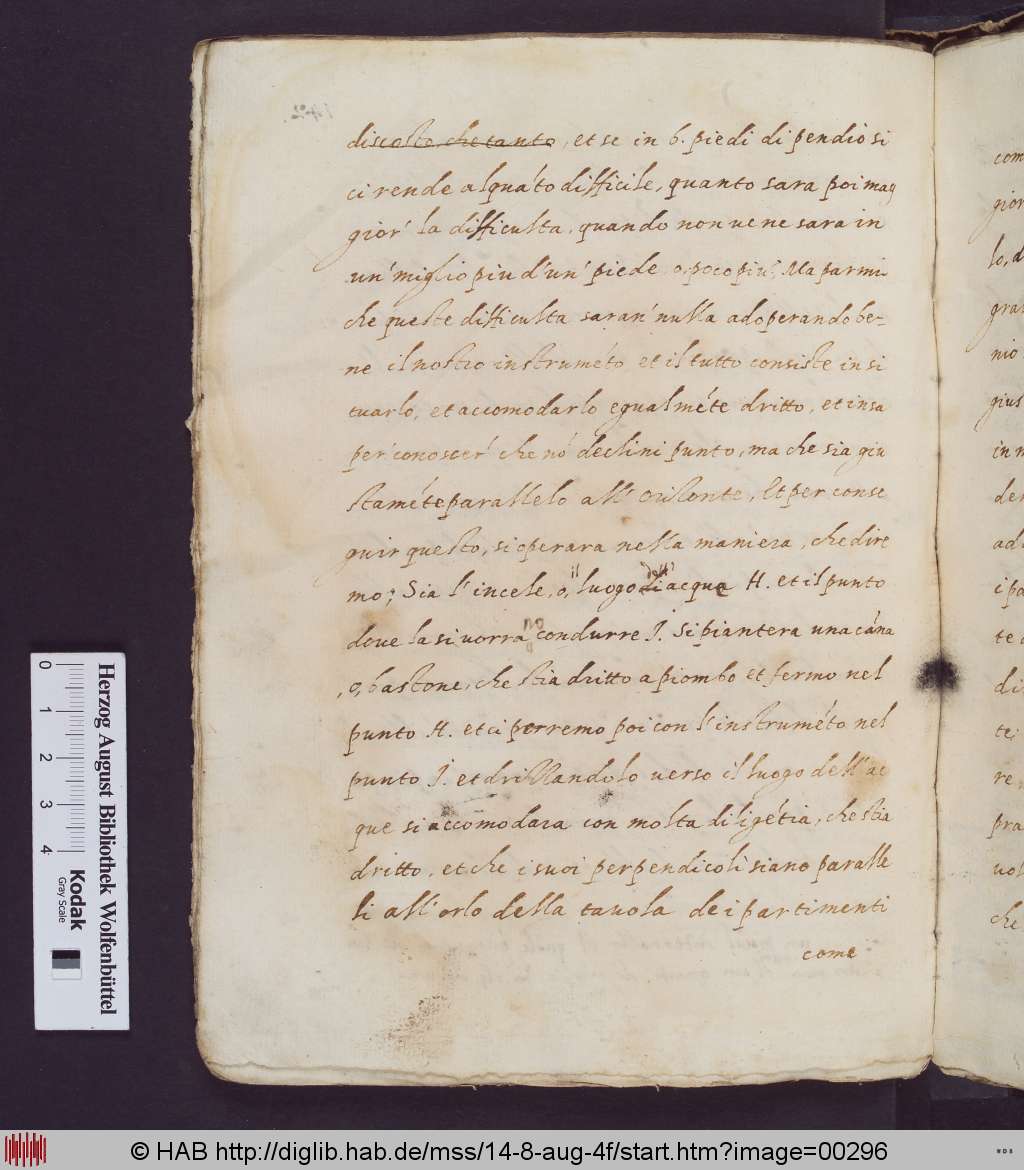 discosto che tanto, et se in 6. piedi di pendio si
ci rende alquáto difficile, quanto sara poi mag
gior' la difficulta, quando non ue ne sara in
un' miglio piu d'un' piede, o, poco piu'. Ma parmi
che queste difficulta saran' nulla adoperando be=
ne il nostro instruméto et il tutto consiste in si
tuarlo, et accomodarlo egualméte dritto, et in sa
per' conoscer' che nó declini punto, ma che sia giu
staméte parallelo all' orizonte, Et per conse
guir questo, si operara nella maniera, che dire
mo; Sia l'incele, o, il luogo dell' acqua H. et il punto
doue la si uorra condurre I. si piantera una cána
,o, bastone, che stia dritto a piombo et fermo nel
punto H. et ci porremo poi con l'instruméto nel
punto I. et drizzandolo uerso il luogo dell' ac
que si accomodara con molta diligétia, che stia
dritto, et che i suoi perpendicoli siano paralle
li all' orlo della tauola dei partimenti
come
com
gior
lo, d
gra
nio
gius
in m
der
ad
i pa
te
di
te;
re
pra
uol
che
0 1 2 3 4
Herzog August Bibliothek Wolfenbüttel
Kodak
Gray Scale
© HAB http://diglib.hab.de/mss/14-8-aug-4f/start.htm?image=00296
WDB